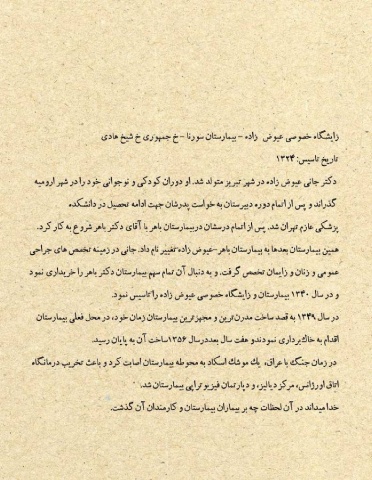 زایشگاه خصوصی عیوض زاده - بیمارستان سورنا - خ جمهوری خ شیخ هادی
تاریخ تاسیس: ۱۳۲۴
دکتر جانی عیوض زاده در شهر تبریز متولد شد. او دوران کودکی و نوجوانی خود را در شهر ارومیه
گذراند و پس از اتمام دوره دبیرستان به خواست پدرشان جهت ادامه تحصیل در دانشکده
پزشکی عازم تهران شد. پس از اتمام درسشان دربیمارستان باهر با آقای دکتر باهر شروع به کار کرد.
همین بیمارستان بعدها به بیمارستان باهر-عیوض زاده تغییر نام داد. جانی در زمینه تخصص های جراحی
عمومی و زنان و زایمان تخصص گرفت. و به دنبال آن تمام سهم بیمارستان دکتر باهر را خریداری نمود
و در سال ۱۳۴۰ بیمارستان و زایشگاه خصوصی عیوض زاده را تاسیس نمود.
در سال ۱۳۴۹ به قصد ساخت مدرن ترین و مجهزترین بیمارستان زمان خود، در محل فعلی بیمارستان
اقدام به خاک برداری نمودندو هفت سال بعددرسال ۱۳۵۶ساخت آن به پایان رسید.
در زمان جنگ با عراق، یك موشك اسکاد به محوطه بیمارستان اصابت کرد و باعث تخریب درمانگاه
اتاق اورژانس، مرکز دیالیز، و دپارتمان فیزیوتراپی بیمارستان شد.
خدا میداند در آن لحظات چه بر بیماران بیمارستان و کارمندان آن گذشت.